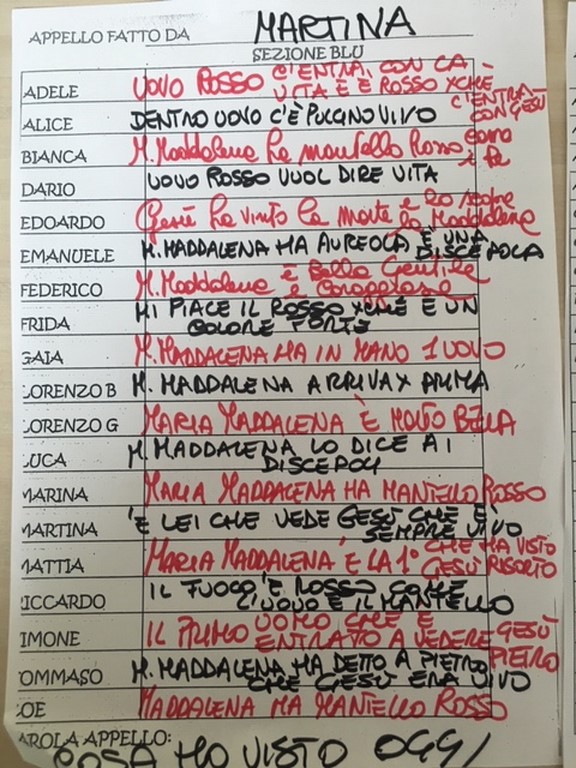 APPELLO FATTO DA MARTINA
SEZIONE BLU
ADELE UOVO ROSSO C'ENTRA CON LA
VITA E È ROSSO XCHÈ
C'ENTRA
CON GESÙ
ALICE DENTRO UOVO C'È PULCINO VIVO
BIANCA M. Maddalena ha mantello Rosso come
DARIO UOVO ROSSO VUOL DIRE VITA
EDOARDO Gesù ha vinto la morte e lo
la Maddalena
EMANUELE M. MADDALENA HA AUREOLA È UNA
DISCEPOLA
FEDERICO M. Maddalena è bella Gentile
e Coraggiosa
FRIDA MI PIACE IL ROSSO XCHÈ È UN
COLORE FORTE
GAIA M. MADDALENA HA IN MANO 1 UOVO
LORENZO B M. MADDALENA ARRIVA X PRIMA
LORENZO G MARIA MADDALENA È MOLTO BELLA
LUCA M. MADDALENA LO DICE AI
DISCEPOLI
MARINA MARIA MADDALENA HA MANTELLO ROSSO
MARTINA È LEI CHE VEDE GESÙ CHE È
SEMPRE VIVO
MATTIA MARIA MADDALENA È LA 1° CHE HA VISTO
GESÙ RISORTO
RICCARDO IL FUOCO È ROSSO COME
L'UOVO E IL MANTELLO
IMONE IL PRIMO UOMO CHE È
ENTRATO A VEDERE GESÙ
PIETRO
OMMASO M. MADDALENA HA DETTO A PIETRO
CHE GESÙ ERA VIVO
OE MADDALENA HA MANTELLO ROSSO
AROLA APPELLO:
COSA HO VISTO OGGI